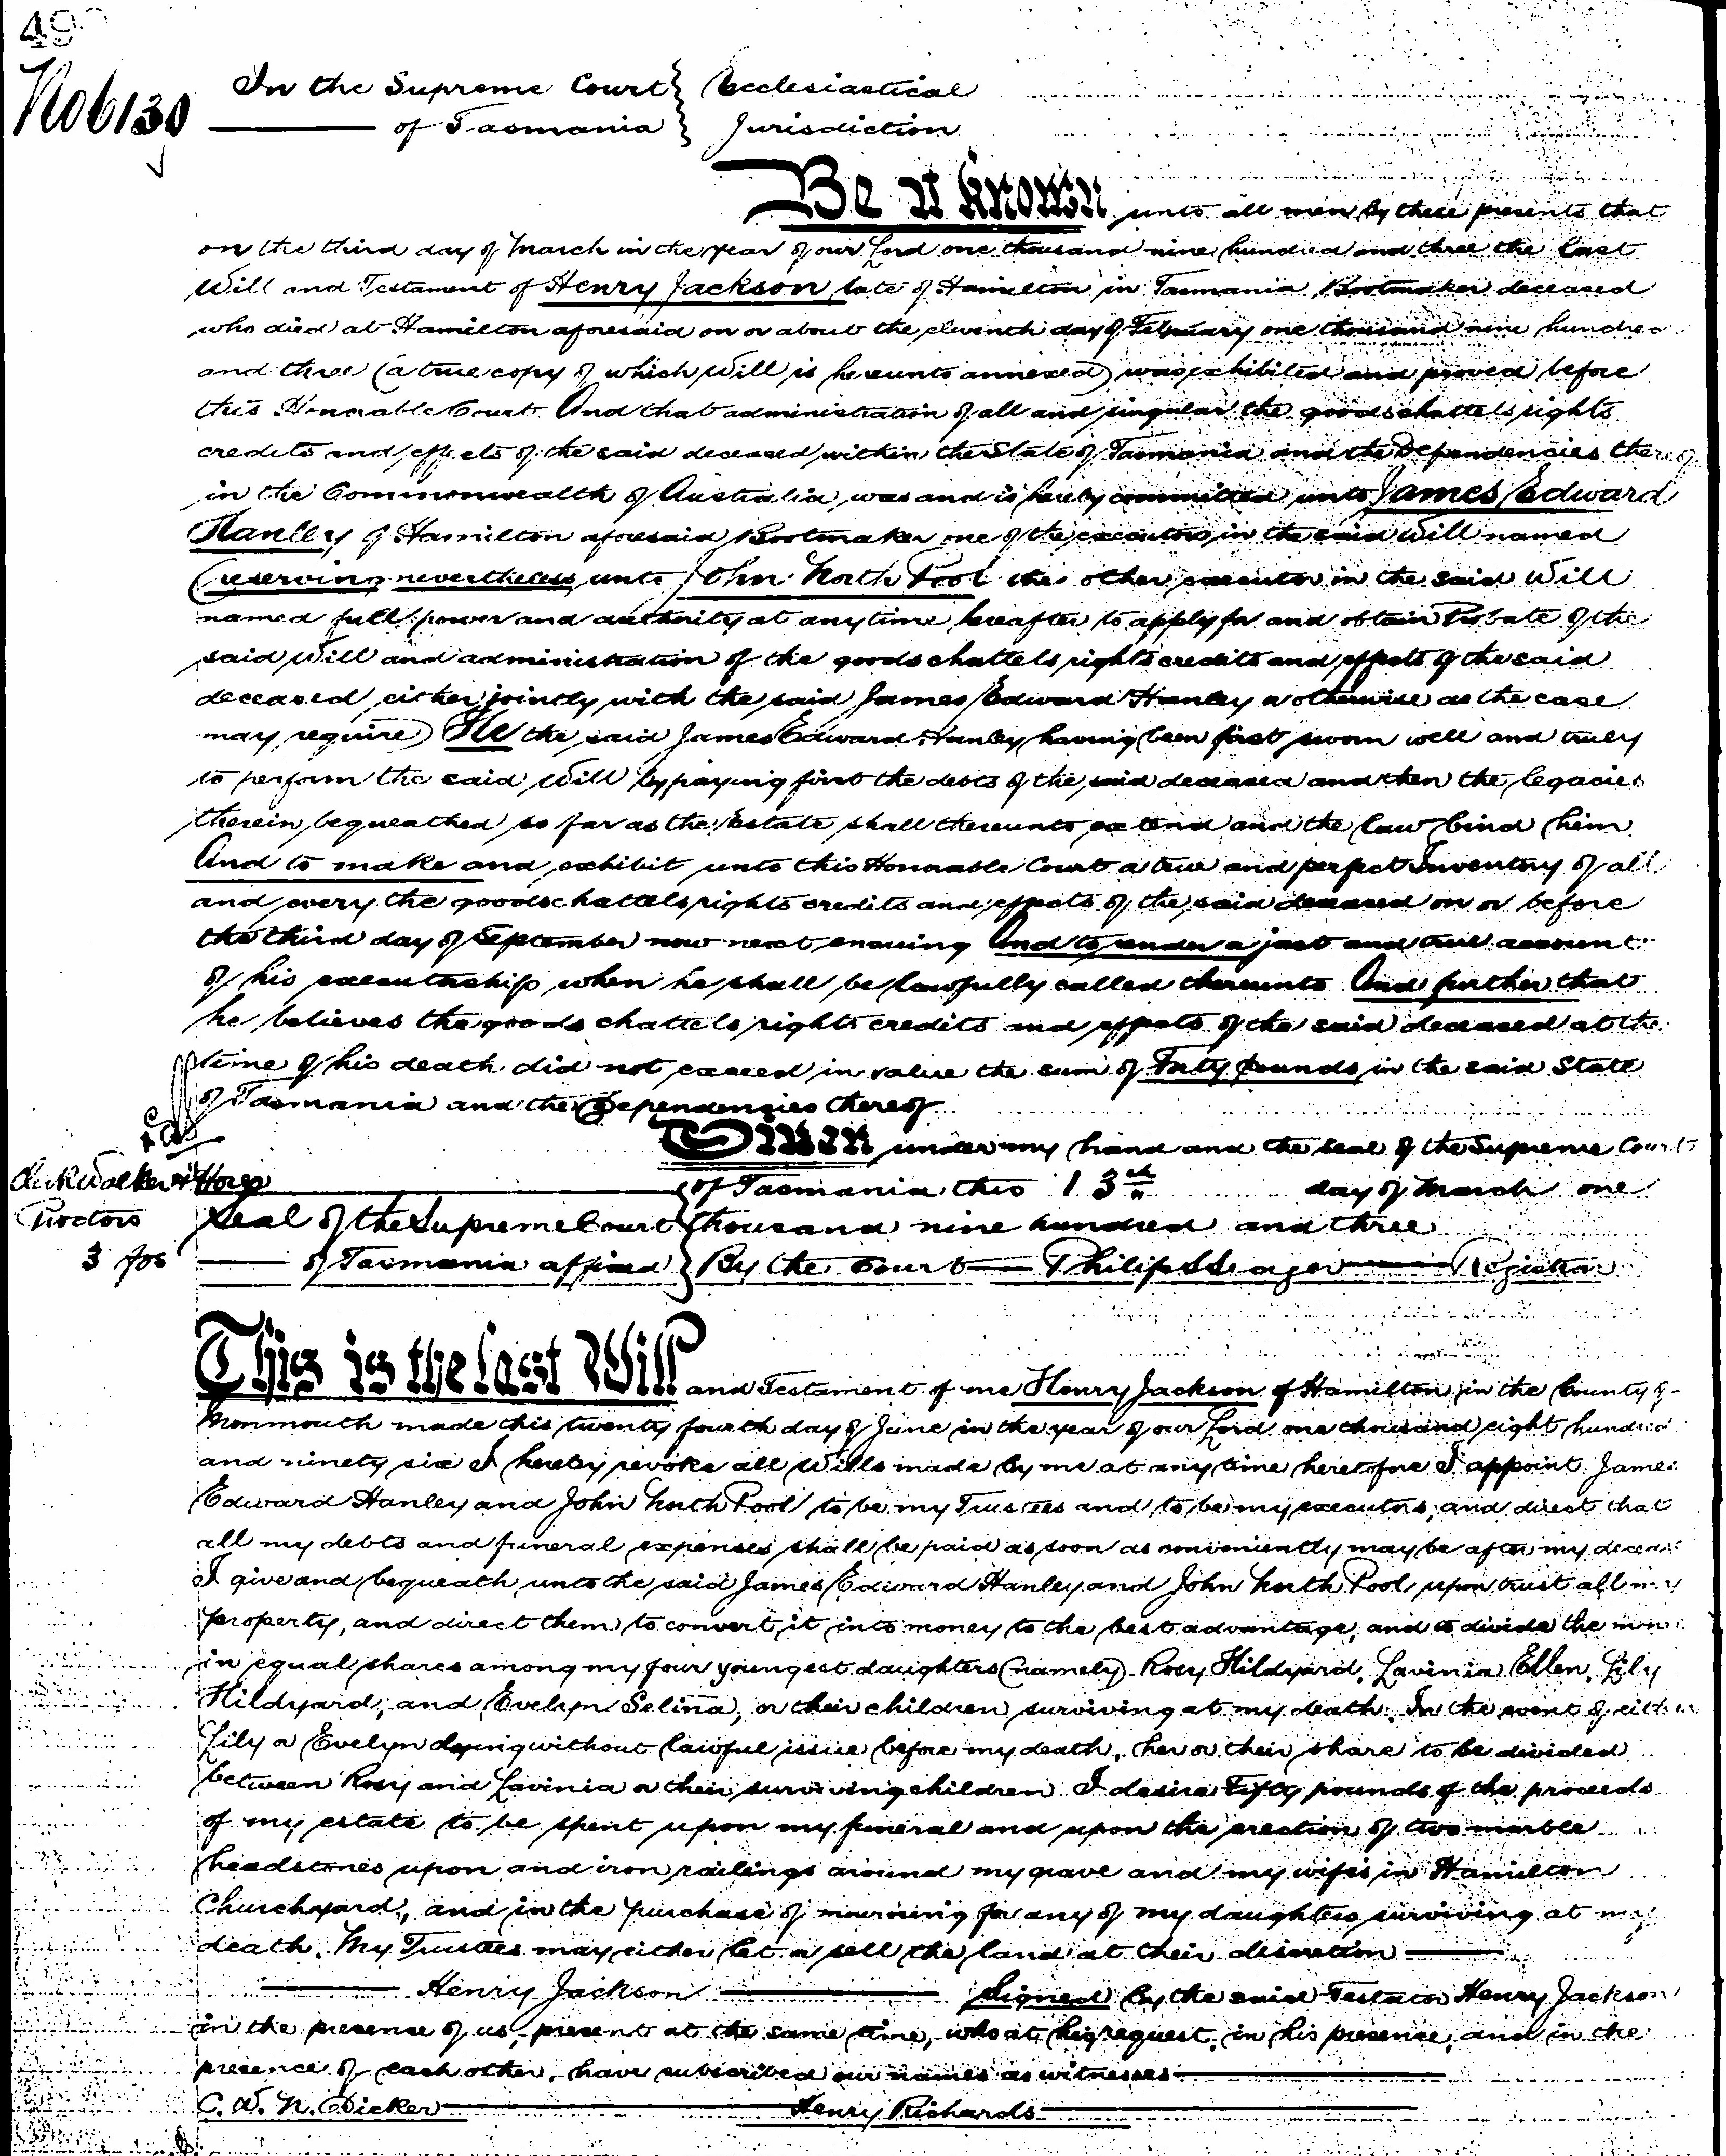 No 6130
In the Supreme Court } Ecclesiastical
of Tasmania } Jurisdiction
Be it Known unto all men by these presents that
on the third day of March in the year of our Lord one thousand nine hundred and three the last
Will and Testament of Henry Jackson late of Hamilton in Tasmania Bootmaker deceased
who died at Hamilton aforesaid on or about the eleventh day of February one thousand nine hundred
and three (a true copy of which Will is hereunto annexed) was exhibited and proved before
this Honorable Court And that administration of all and singular the goods chattels rights
credits and effects of the said deceased within the State of Tasmania and the Dependencies thereof
in the Commonwealth of Australia was and is hereby committed unto James Edward
Hanley of Hamilton aforesaid Bootmaker one of the executors in the said Will named
(reserving nevertheless unto John North Pool the other executor in the said Will
named full power and authority at any time hereafter to apply for and obtain Probate of the
said Will and administration of the goods chattels rights credits and effects of the said
deceased either jointly with the said James Edward Hanley or otherwise as the case
may require) He the said James Edward Hanley having been first sworn well and truly
to perform the said Will by paying first the debts of the said deceased and then the legacies
therein bequeathed so far as the Estate shall thereunto extend and the law bind him
And to make and exhibit unto this Honorable Court a true and perfect Inventory of all
and every the goods chattels rights credits and effects of the said deceased on or before
the third day of September now next ensuing And to render a just and true account
of his executorship when he shall be lawfully called thereunto And further that
he believes the goods chattels rights credits and effects of the said deceased at the
time of his death did not exceed in value the sum of pounds in the said State
of Tasmania and the Dependencies thereof
Given under my hand and the seal of the Supreme Court
of Tasmania this 13th day of March one
Proctors
Seal of the Supreme Court } thousand nine hundred and three
3 fos
of Tasmania affixed } By the Court Philip S Seager Registrar
This is the last Will and Testament of me Henry Jackson of Hamilton in the County of
Monmouth made this twenty fourth day of June in the year of our Lord one thousand eight hundred
and ninety six I hereby revoke all Wills made by me at any time heretofore I appoint James
Edward Hanley and John North Pool to be my Trustees and to be my executors, and direct that
all my debts and funeral expenses shall be paid as soon as conveniently may be after my decease
I give and bequeath unto the said James Edward Hanley and John North Pool upon trust all my
property, and direct them to convert it into money to the best advantage, and to divide the
in equal shares among my four youngest daughters (namely) Rosy Hildyard, Lavinia Ellen, Lily
Hildyard, and Evelyn Selina, or their children surviving at my death. In the event of either
Lily or Evelyn dying without lawful issue before my death, her or their share to be divided
between Rosy and Lavinia or their surviving children I desire Fifty pounds of the proceeds
of my estate to be spent upon my funeral and upon the erection of two marble
headstones upon and iron railings around my grave and my wife's in Hamilton
Churchyard, and in the purchase of mourning for any of my daughters surviving at my
death. My Trustees may either let or sell the land at their discretion
Henry Jackson Signed by the said Testator Henry Jackson
in the presence of us, present at the same time, who at his request, in his presence, and in the
presence of each other, have subscribed our names as witnesses
C. W. N. Dicker Henry Richards